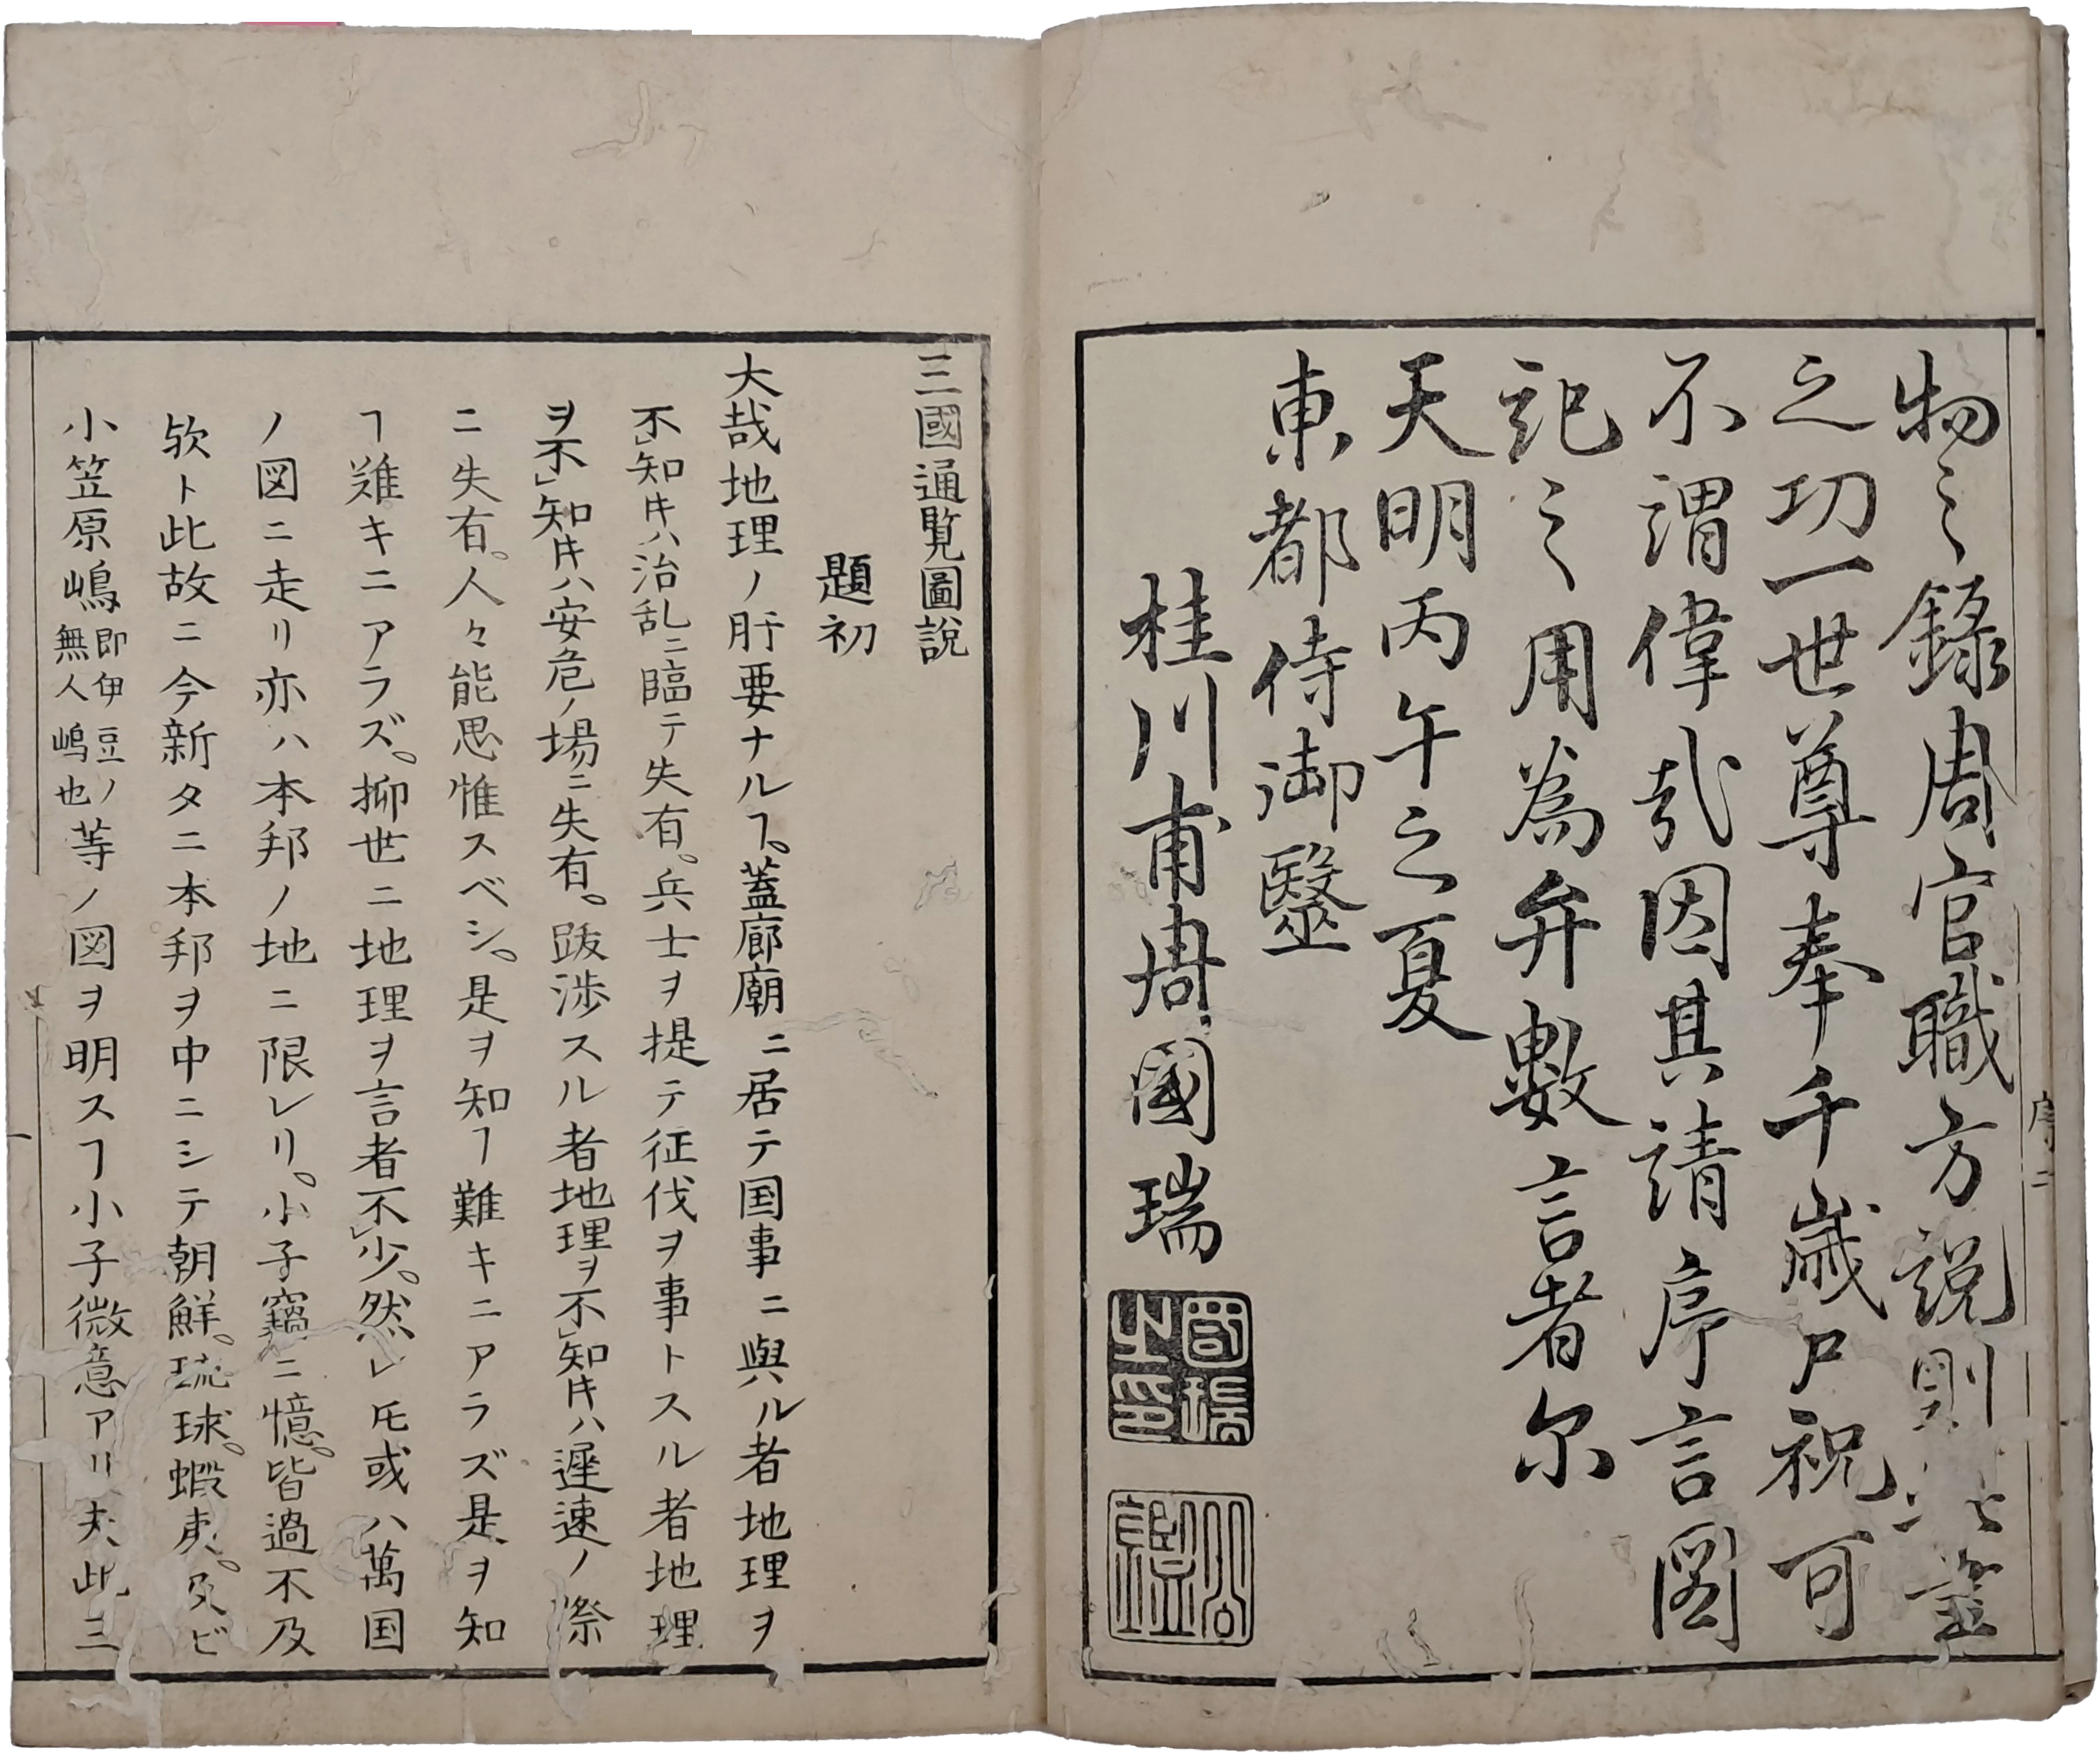 物之録周官職方説則
之功一世尊奉千歳尸祝可
不謂偉哉因其請序言図
記之用為弁數言者尓
天明丙午之夏
東都侍御醫
桂川甫周國瑞
國瑞之印
公鑑
序二
三國通覧圖説
題初
大哉地理ノ肝要ナルヿ。蓋廊廟ニ居テ国事ニ與ル者地理ヲ
不知片ハ治乱ニ臨テ失有。兵士ヲ提テ征伐ヲ事トスル者地理
ヲ不知片ハ安危ノ場ニ失有。跋渉スル者地理ヲ不知片ハ遲速ノ際
ニ失有。人々能思惟スベシ。是ヲ知ヿ難キニアラズ是ヲ知
ヿ難キニアラズ。抑世ニ地理ヲ言者不少。然レ𪜈或ハ萬国
ノ図ニ走リ亦ハ本邦ノ地ニ限レリ。小子竊ニ憶。皆過不及
欤ト此故ニ今新タニ本邦ヲ中ニシテ朝鮮。琉球。蝦夷。及ビ
小笠原嶋即伊豆ノ無人嶋也等ノ図ヲ明スヿ小子微意アリ夫此三